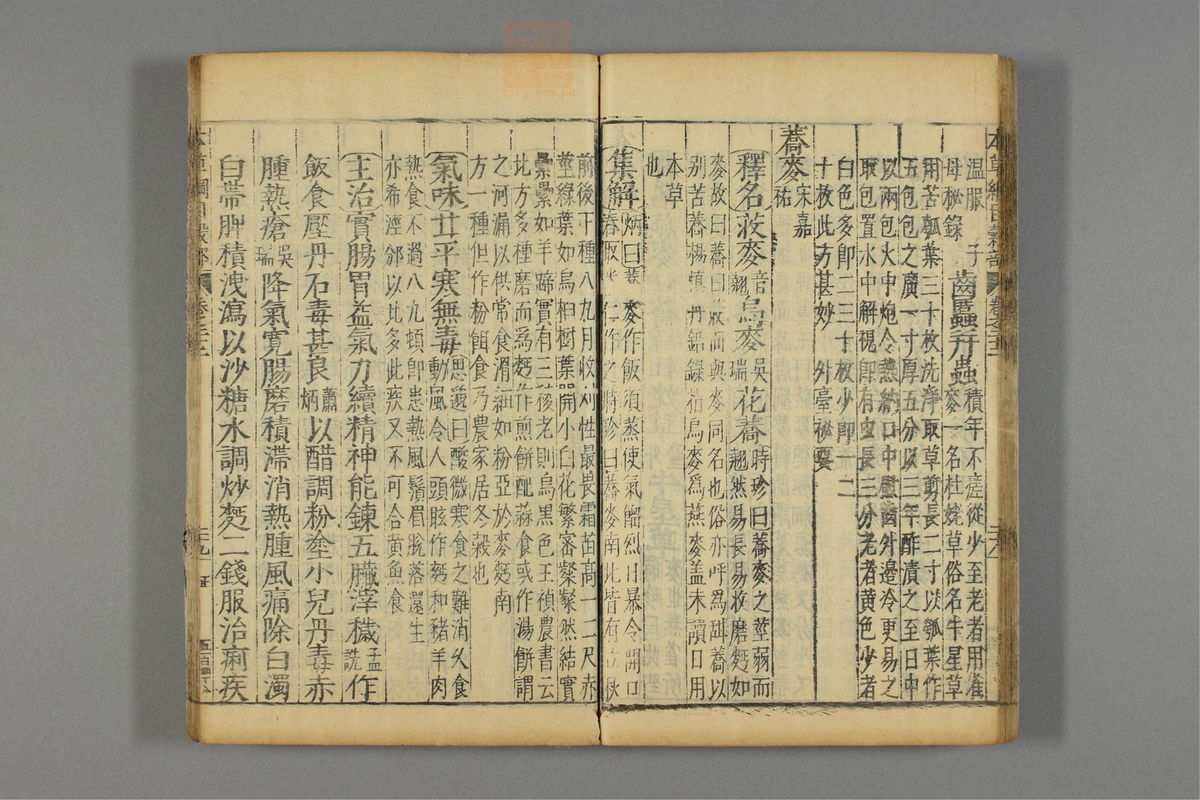 溫服 子 齒䘌并蟲 積年不瘥從少至老者用雀
母秘錄 麥一名杜姥草俗名牛星草
用苦瓠葉三十枚洗淨取草剪長二寸以瓠葉作
五包包之廣一寸厚五分以三年酢漬之至日中
以兩包火中炮令熱納口中熨齒外邊冷更易之
取包置水中解視即有虫長三分老者黃色少者
白色多即二三十枚少即一二
十枚此方甚妙 外臺秘要
蕎麥 宋嘉
祐
釋名 荍麥 音翹 烏麥 吳瑞 花蕎 時珍曰蕎麥之莖弱而
翹然易長易收磨麪如
麥故曰蕎曰荍而與麥同名也俗亦呼爲甜蕎以
別苦蕎楊慎丹鉛錄指烏麥爲燕麥盖未讀日用
本草
也
集解 炳曰蕎麥作飯須蒸使氣餾烈日暴令開口
春取米仁作之時珍曰蕎麥南北皆有立秋
前後下種八九月收刈性最畏霜苗高一二尺赤
莖綠葉如烏桕樹葉開小白花繁密粲粲然結實
纍纍如羊蹄實有三稜老則烏黑色王禎農書云
北方多種磨而爲麪作煎餅配蒜食或作湯餅謂
之河漏以供常食滑細如粉亞於麥麪南
方一種但作粉餌食乃農家居冬穀也
氣味 甘平寒無毒 思邈曰酸微寒食之難消久食
動風令人頭眩作麪和豬羊肉
熱食不過八九頓即患熱風鬚眉脫落還生
亦希涇邠以北多此疾又不可合黃魚食
主治 實腸胃益氣力續精神能鍊五臟滓穢 孟詵 作
飯食壓丹石毒甚良 蕭炳 以醋調粉塗小兒丹毒赤
腫熱瘡 吳瑞 降氣寬腸磨積滯消熱腫風痛除白濁
白帶脾積洩瀉以沙糖水調炒麪二錢服治痢疾